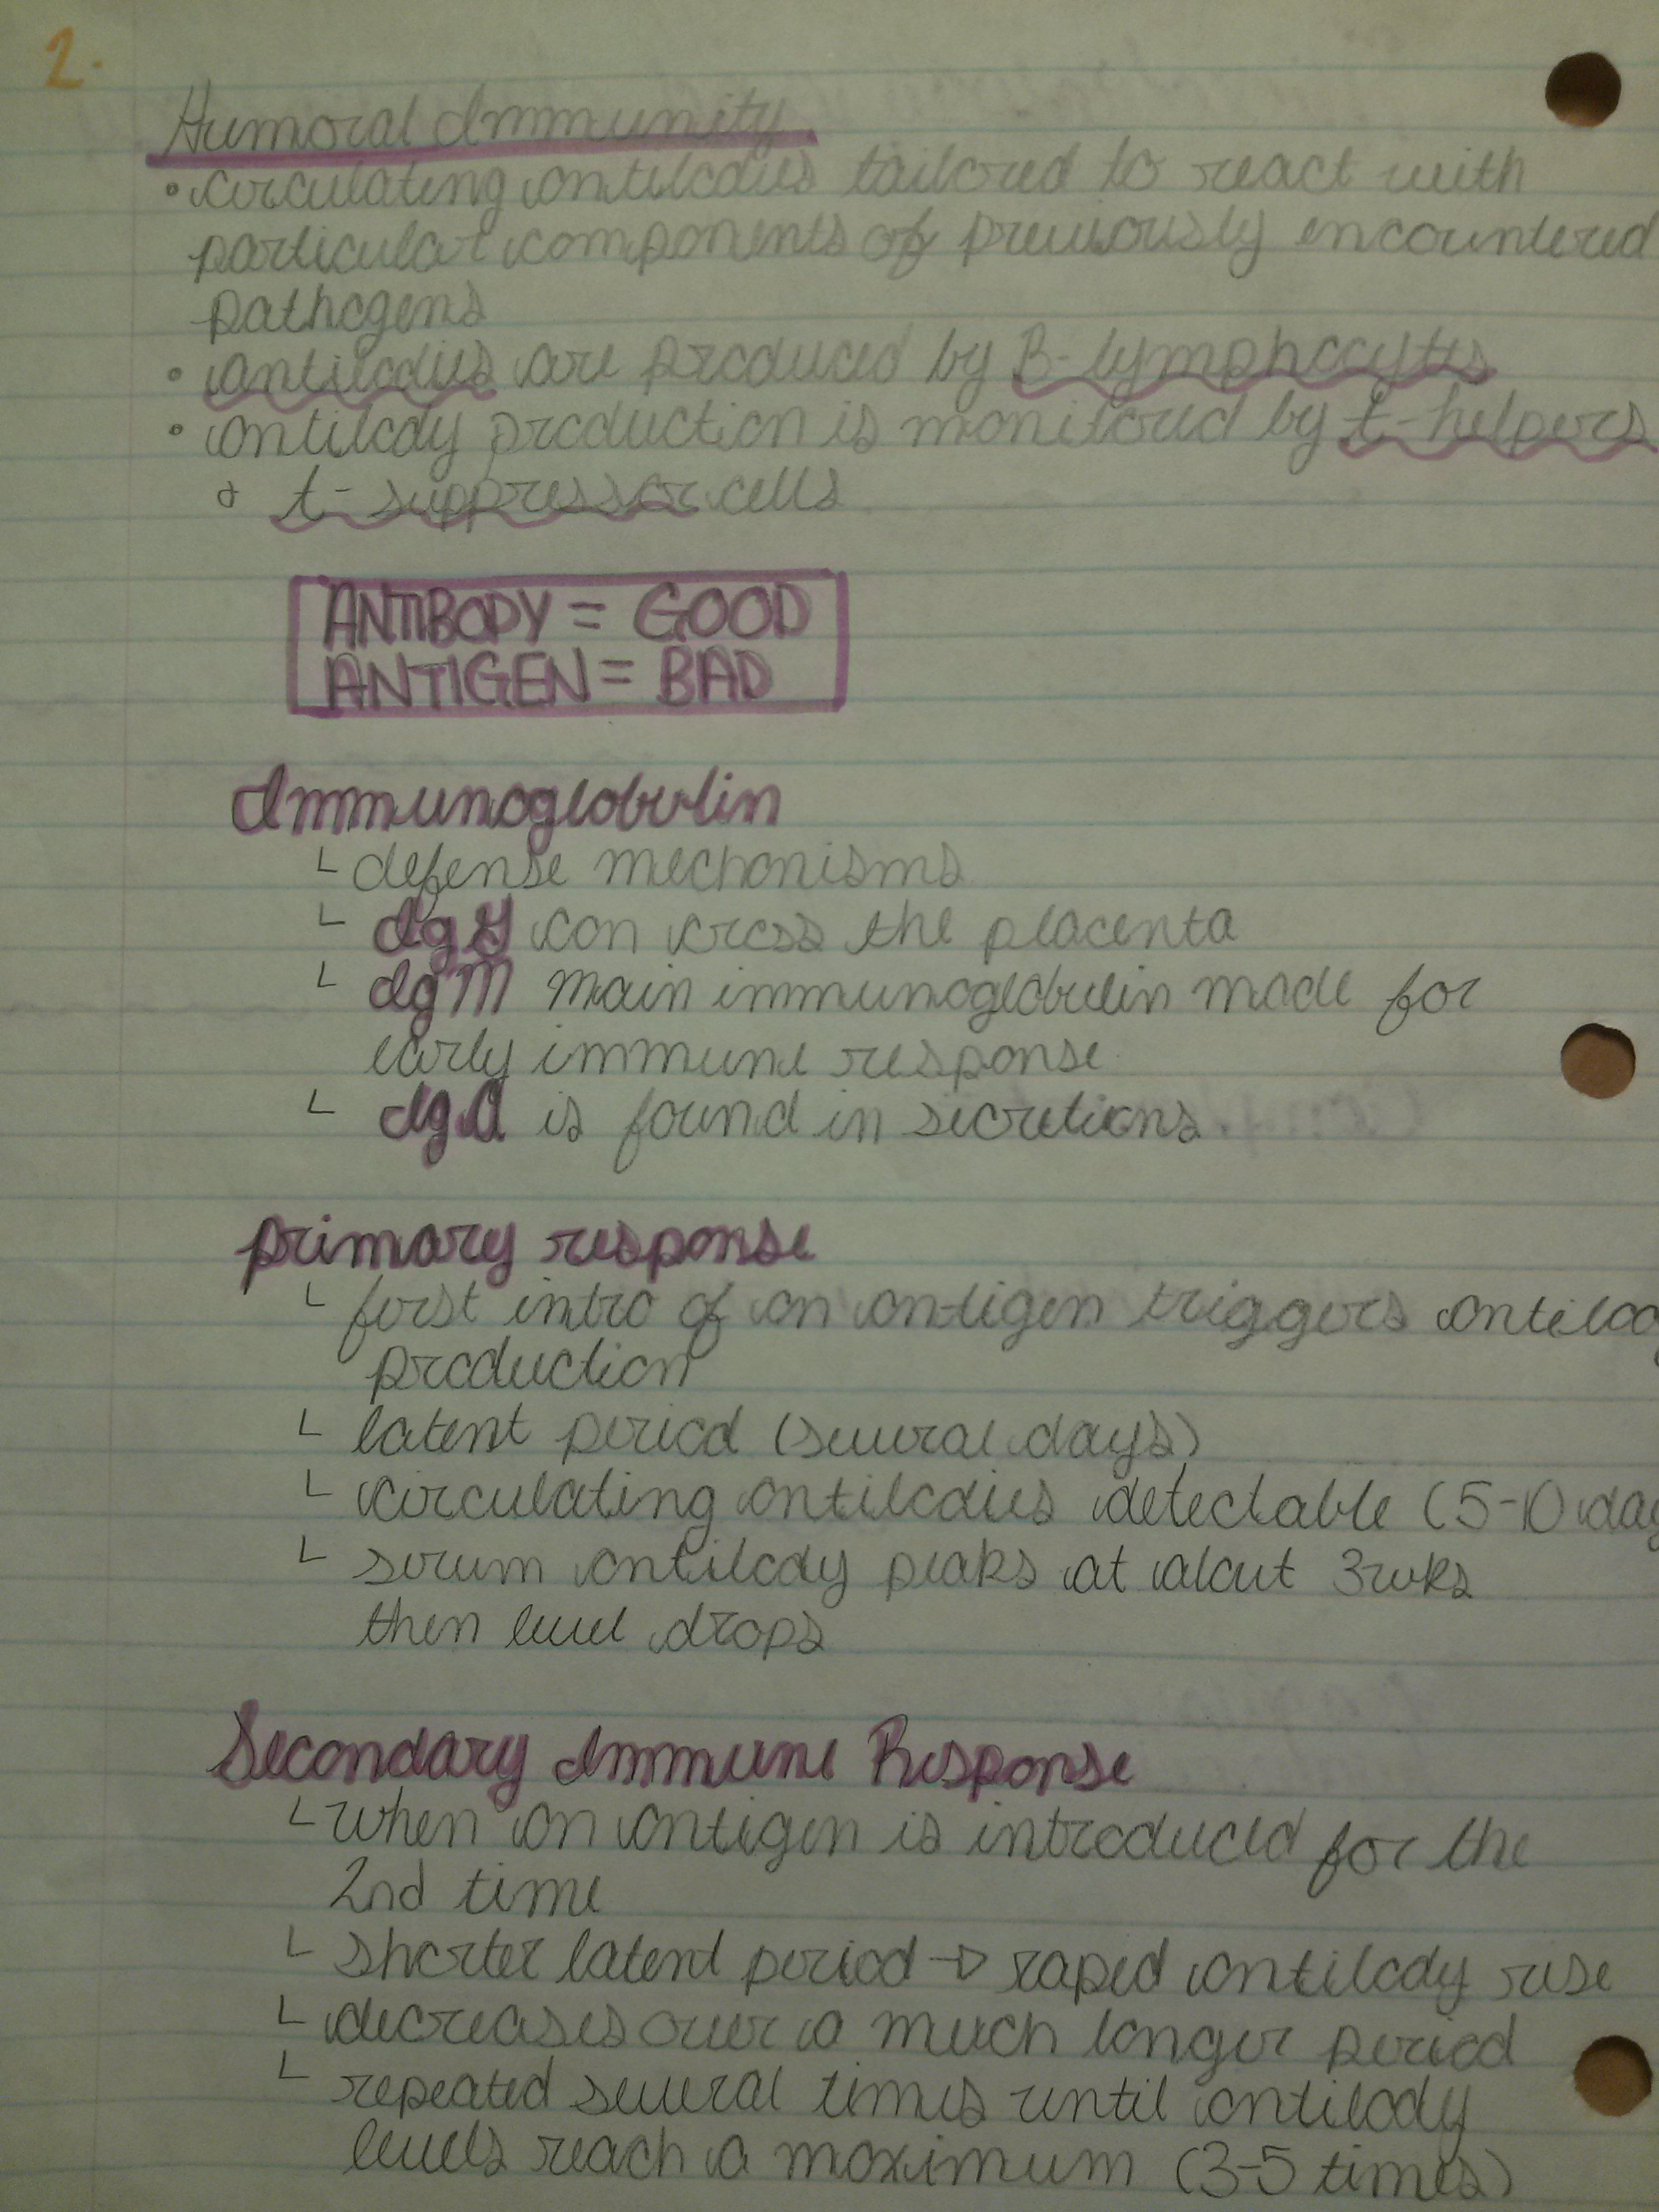 2.
Humoral Immunity
• circulating antibodies tailored to react with
particular components of previously encountered
pathogens
• antibodies are produced by B-lymphocytes
• antibody production is monitored by t-helpers
& t-suppressor cells
ANTIBODY = GOOD
ANTIGEN = BAD
Immunoglobulin
└ defense mechanisms
└ IgG can cross the placenta
└ IgM main immunoglobulin made for
early immune response
└ IgA is found in secretions
primary response
└ first intro of an antigen triggers antibody
production
└ latent period (several days)
└ circulating antibodies detectable (5-10 day
└ serum antibody peaks at about 3wks
then level drops
Secondary Immune Response
└ when an antigen is introduced for the
2nd time
└ shorter latent period → rapid antibody rise
└ decreases over a much longer period
└ repeated several times until antibody
levels reach a maximum (3-5 times)